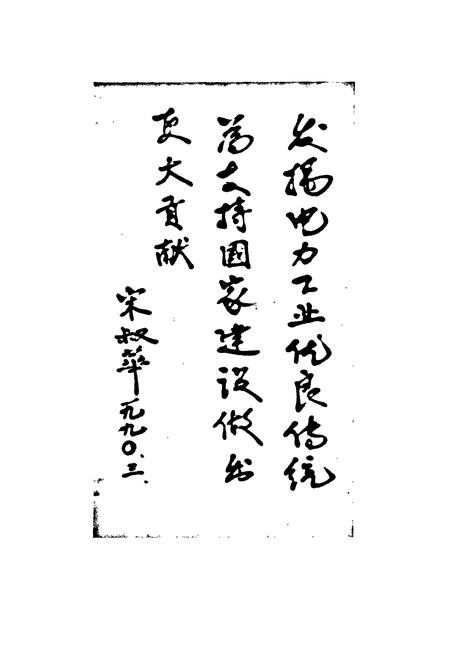 发扬电力工业优良传统
为支持国家建设做出
更大贡献
宋叔华 一九九〇.三.